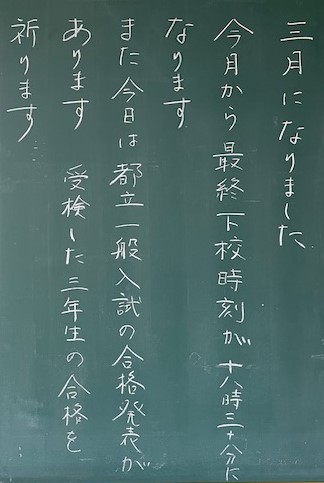 三月になりました
今月から最終下校時刻が十八時三十分に
なります
また今日は都立一般入試の合格発表が
あります 受検した三年生の合格を
祈ります